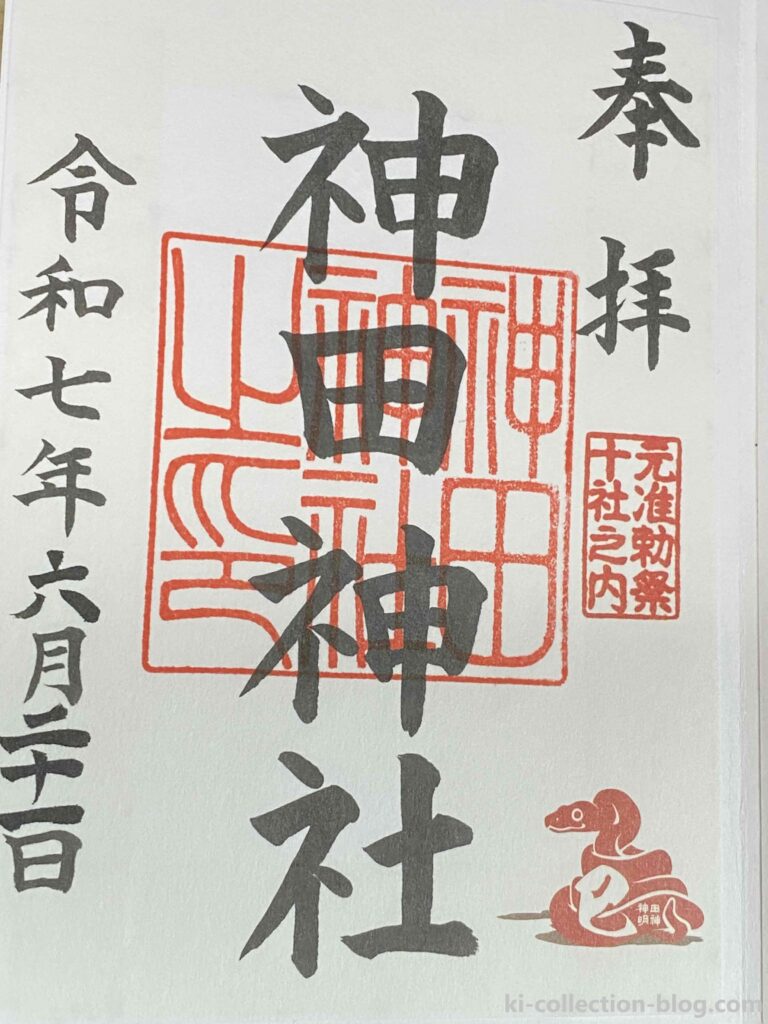 奉拝
元准勅祭
十社之内
神田神社
神田
神社
之印
令和七年六月二十一日
巳
田神
神明
ki-collection-blog.com